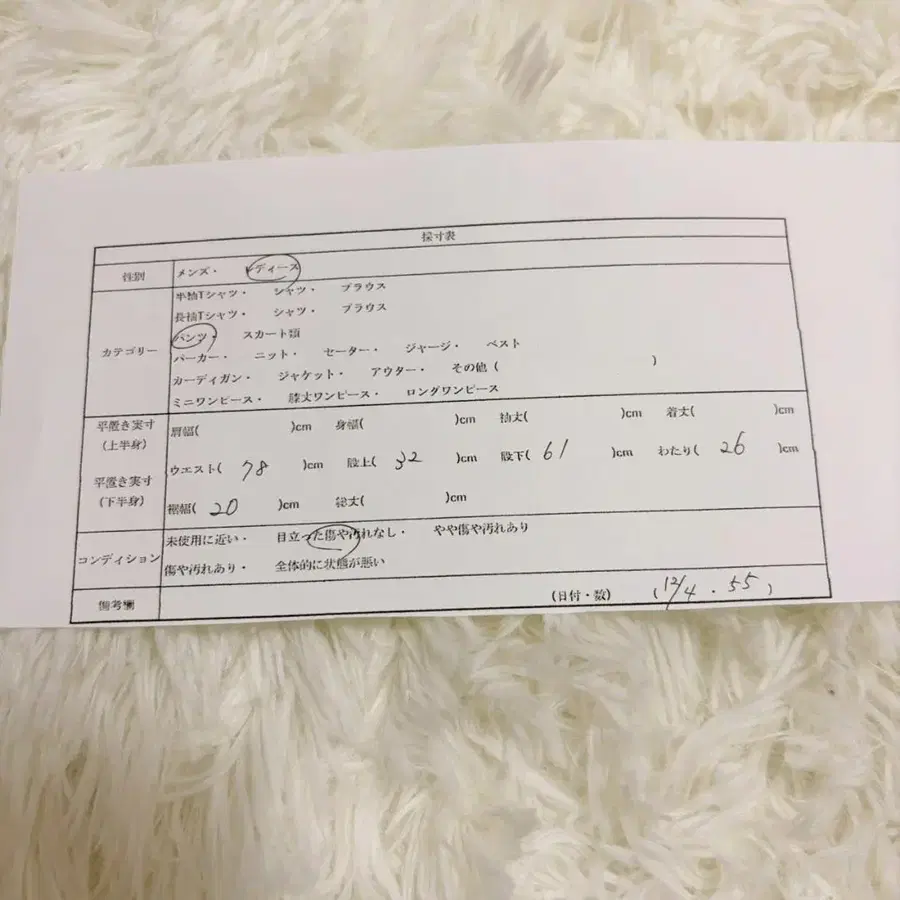 採寸表
性別 メンズ・ レディース
半袖Tシャツ・ シャツ・ ブラウス
長袖Tシャツ・ シャツ・ ブラウス
パンツ・ スカート類
カテゴリー パーカー・ ニット・ セーター・ ジャージ・ ベスト
カーディガン・ ジャケット・ アウター・ その他( )
ミニワンピース・ 膝丈ワンピース・ ロングワンピース
平置き実寸 (上半身) 肩幅( )cm 身幅( )cm 袖丈( )cm 着丈( )cm
平置き実寸 (下半身) ウエスト( 78 )cm 股上( 32 )cm 股下( 61 )cm わたり( 26 )cm
裾幅( 20 )cm 総丈( )cm
コンディション 未使用に近い・ 目立った傷や汚れなし・ やや傷や汚れあり
傷や汚れあり・ 全体的に状態が悪い
備考欄 (日付・数) (12/4・55)